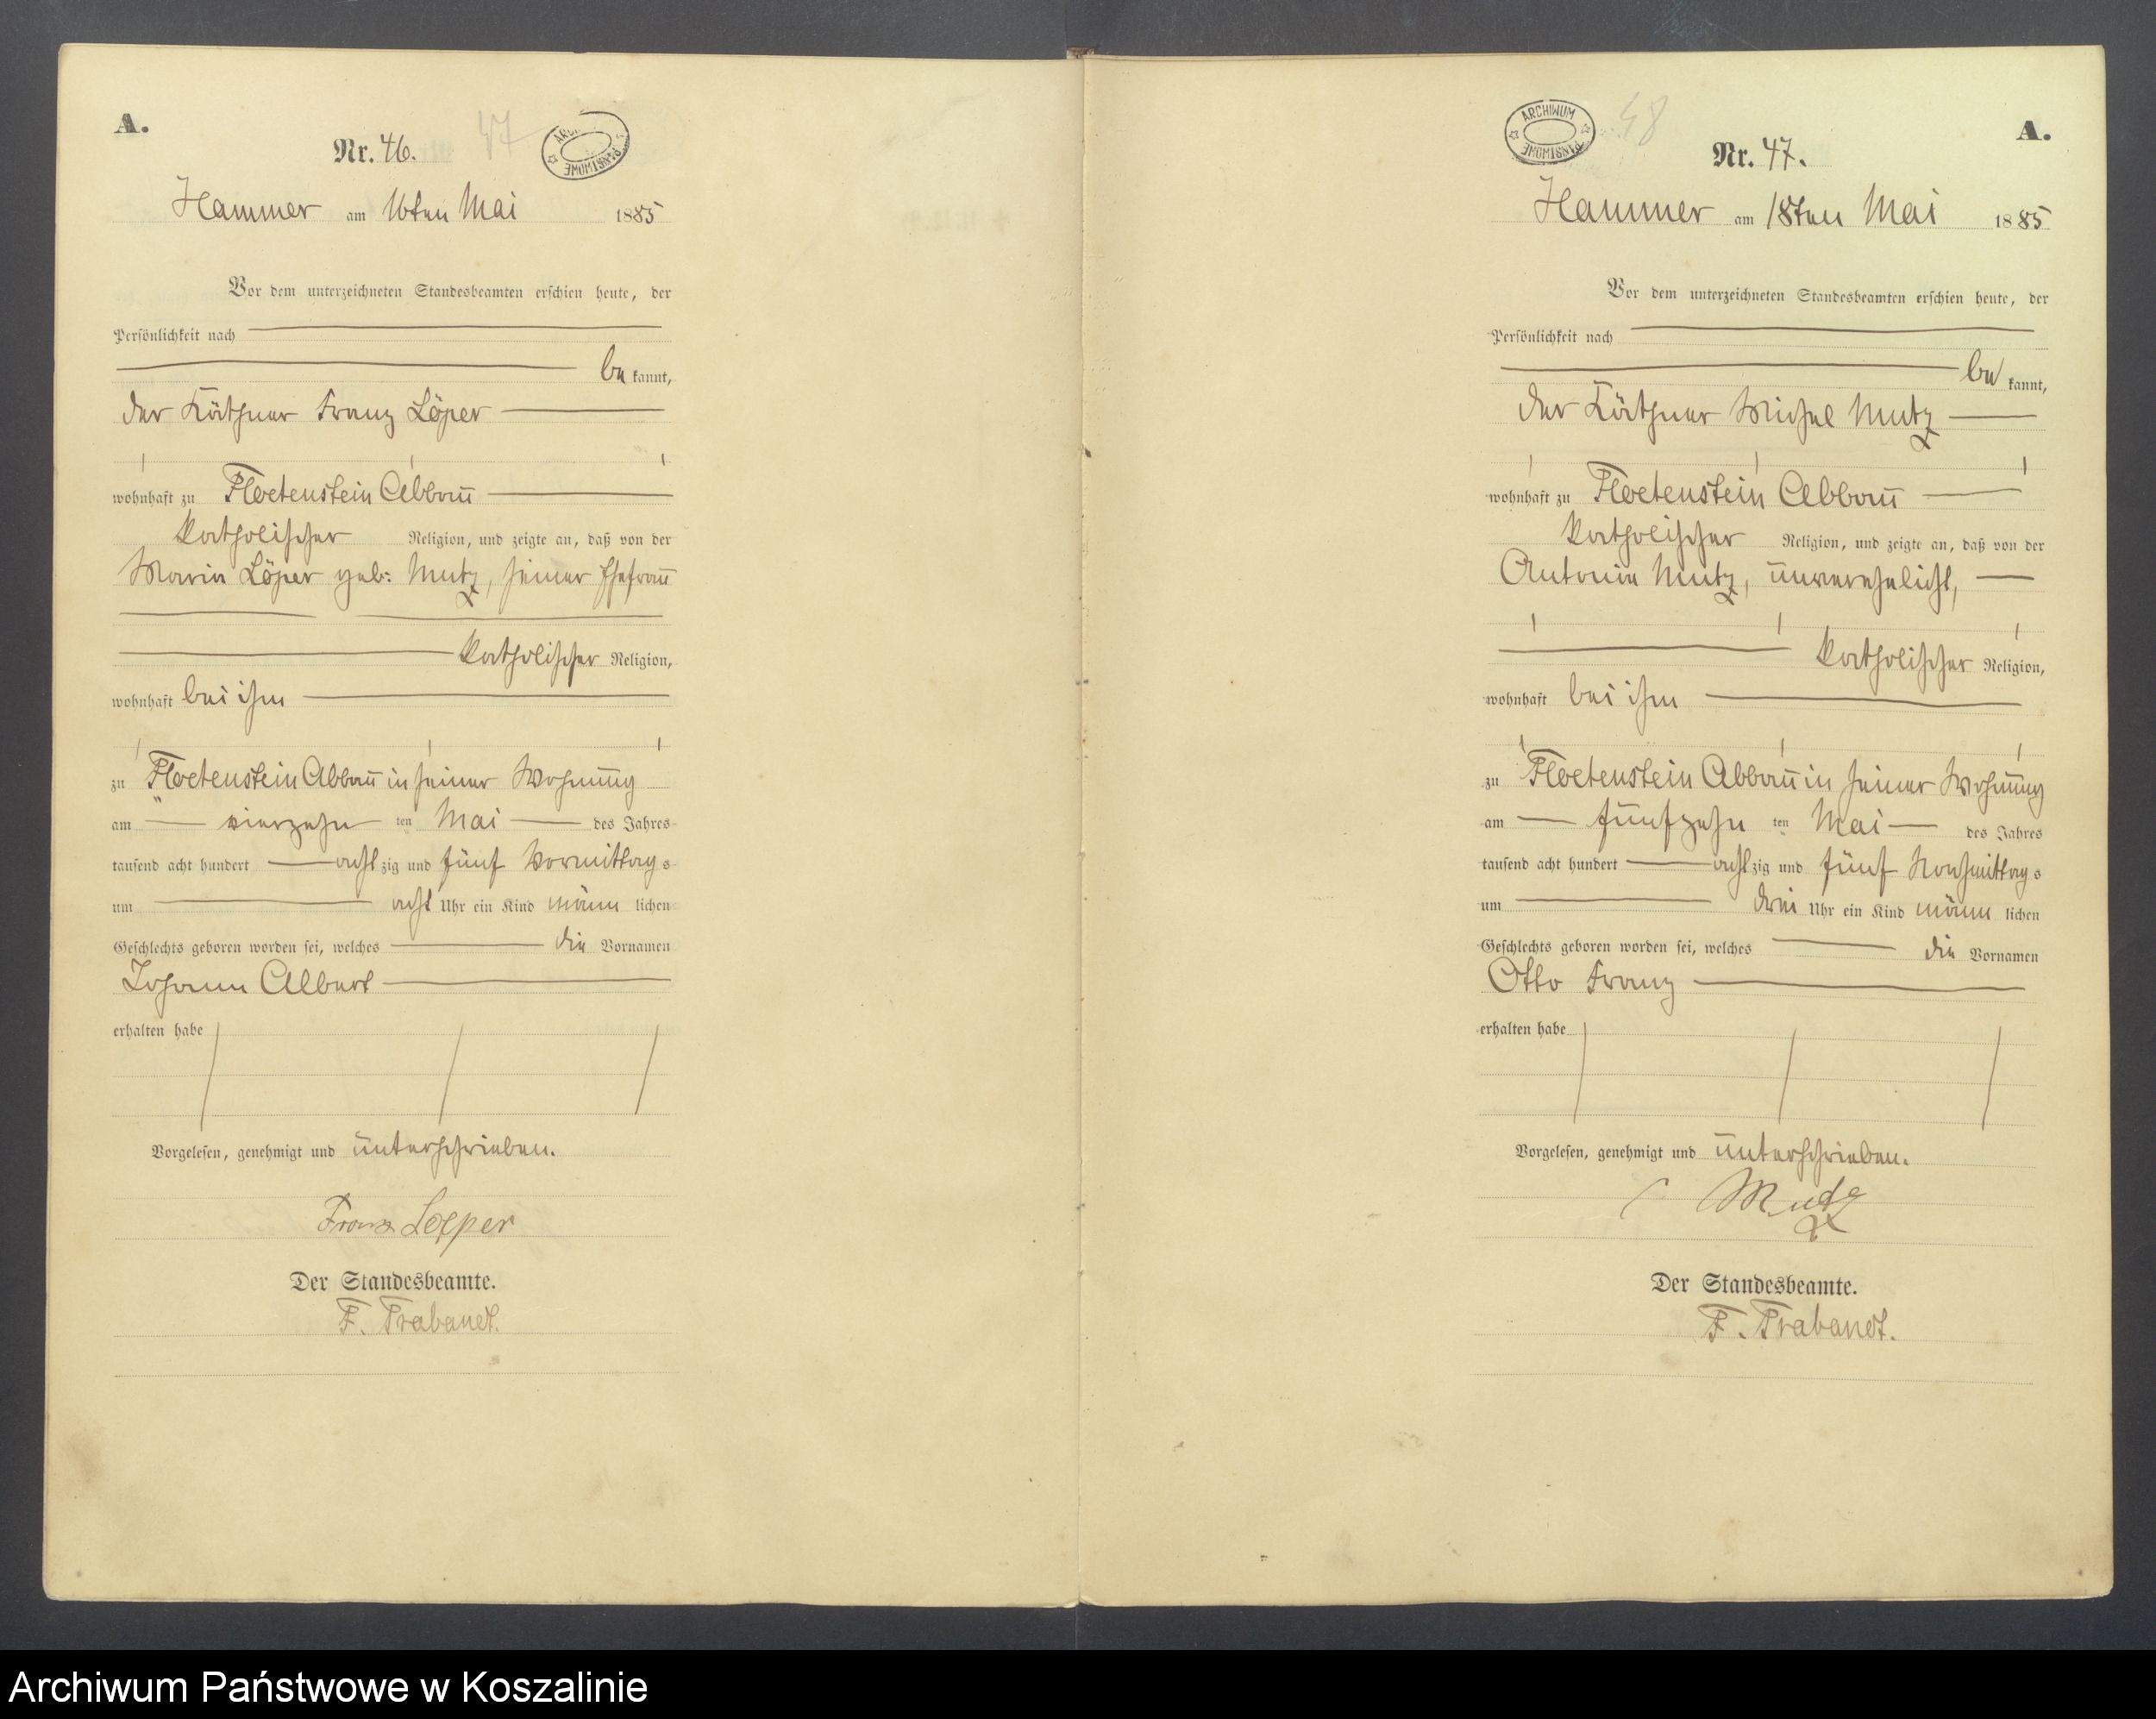 A.
Nr. 46.
47
ARCHIWUM PAŃSTWOWE
Hammer am 16ten Mai 1885
Vor dem unterzeichneten Standesbeamten erschien heute, der
Persönlichkeit nach
be kannt,
der Käthner Franz Löper
wohnhaft zu Floetenstein Abbau
katholischer Religion, und zeigte an, daß von der
Maria Löper geb: Mutz, seiner Ehefrau
katholischer Religion,
wohnhaft bei ihm
zu Floetenstein Abbau in seiner Wohnung
am vierzehn ten Mai des Jahres
tausend acht hundert acht zig und fünf Vormittag s
um acht Uhr ein Kind männ lichen
Geschlechts geboren worden sei, welches die Vornamen
Johann Albert
erhalten habe
Vorgelesen, genehmigt und unterschrieben.
Franz Loeper
Der Standesbeamte.
F. Trabandt.
ARCHIWUM PAŃSTWOWE
48
A.
Nr. 47.
Hammer am 18ten Mai 1885
Vor dem unterzeichneten Standesbeamten erschien heute, der
Persönlichkeit nach
be kannt,
der Käthner Michel Mutz
wohnhaft zu Floetenstein Abbau
katholischer Religion, und zeigte an, daß von der
Antonie Mutz, unverehelicht,
katholischer Religion,
wohnhaft bei ihm
zu Floetenstein Abbau in seiner Wohnung
am fünfzehn ten Mai des Jahres
tausend acht hundert acht zig und fünf Nachmittag s
um drei Uhr ein Kind männ lichen
Geschlechts geboren worden sei, welches die Vornamen
Otto Franz
erhalten habe
Vorgelesen, genehmigt und unterschrieben.
Mutz
Der Standesbeamte.
F. Trabandt.
Archiwum Państwowe w Koszalinie